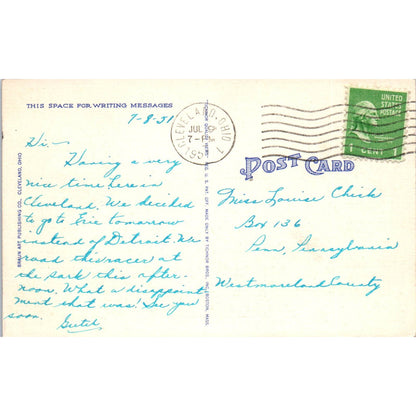 THIS SPACE FOR WRITING MESSAGES
7-8-51
Hi -
Having a very
nice time here in
Cleveland. We decided
to go to Erie tomorrow
instead of Detroit. We
road this racer at
the park this after-
noon. What a disappoint
ment that was! See you
soon.
BRAUN ART PUBLISHING CO., CLEVELAND, OHIO
TICHNOR BROS., INC., BOSTON, MASS.
CLEVELAND, OHIO
JUL
7-PM
1951
1
UNITED
STATES
POSTAGE
1 CENT 1
POST CARD
Miss Louise Chick
Box 136
Penn, Pennsylvania
Westmoreland County